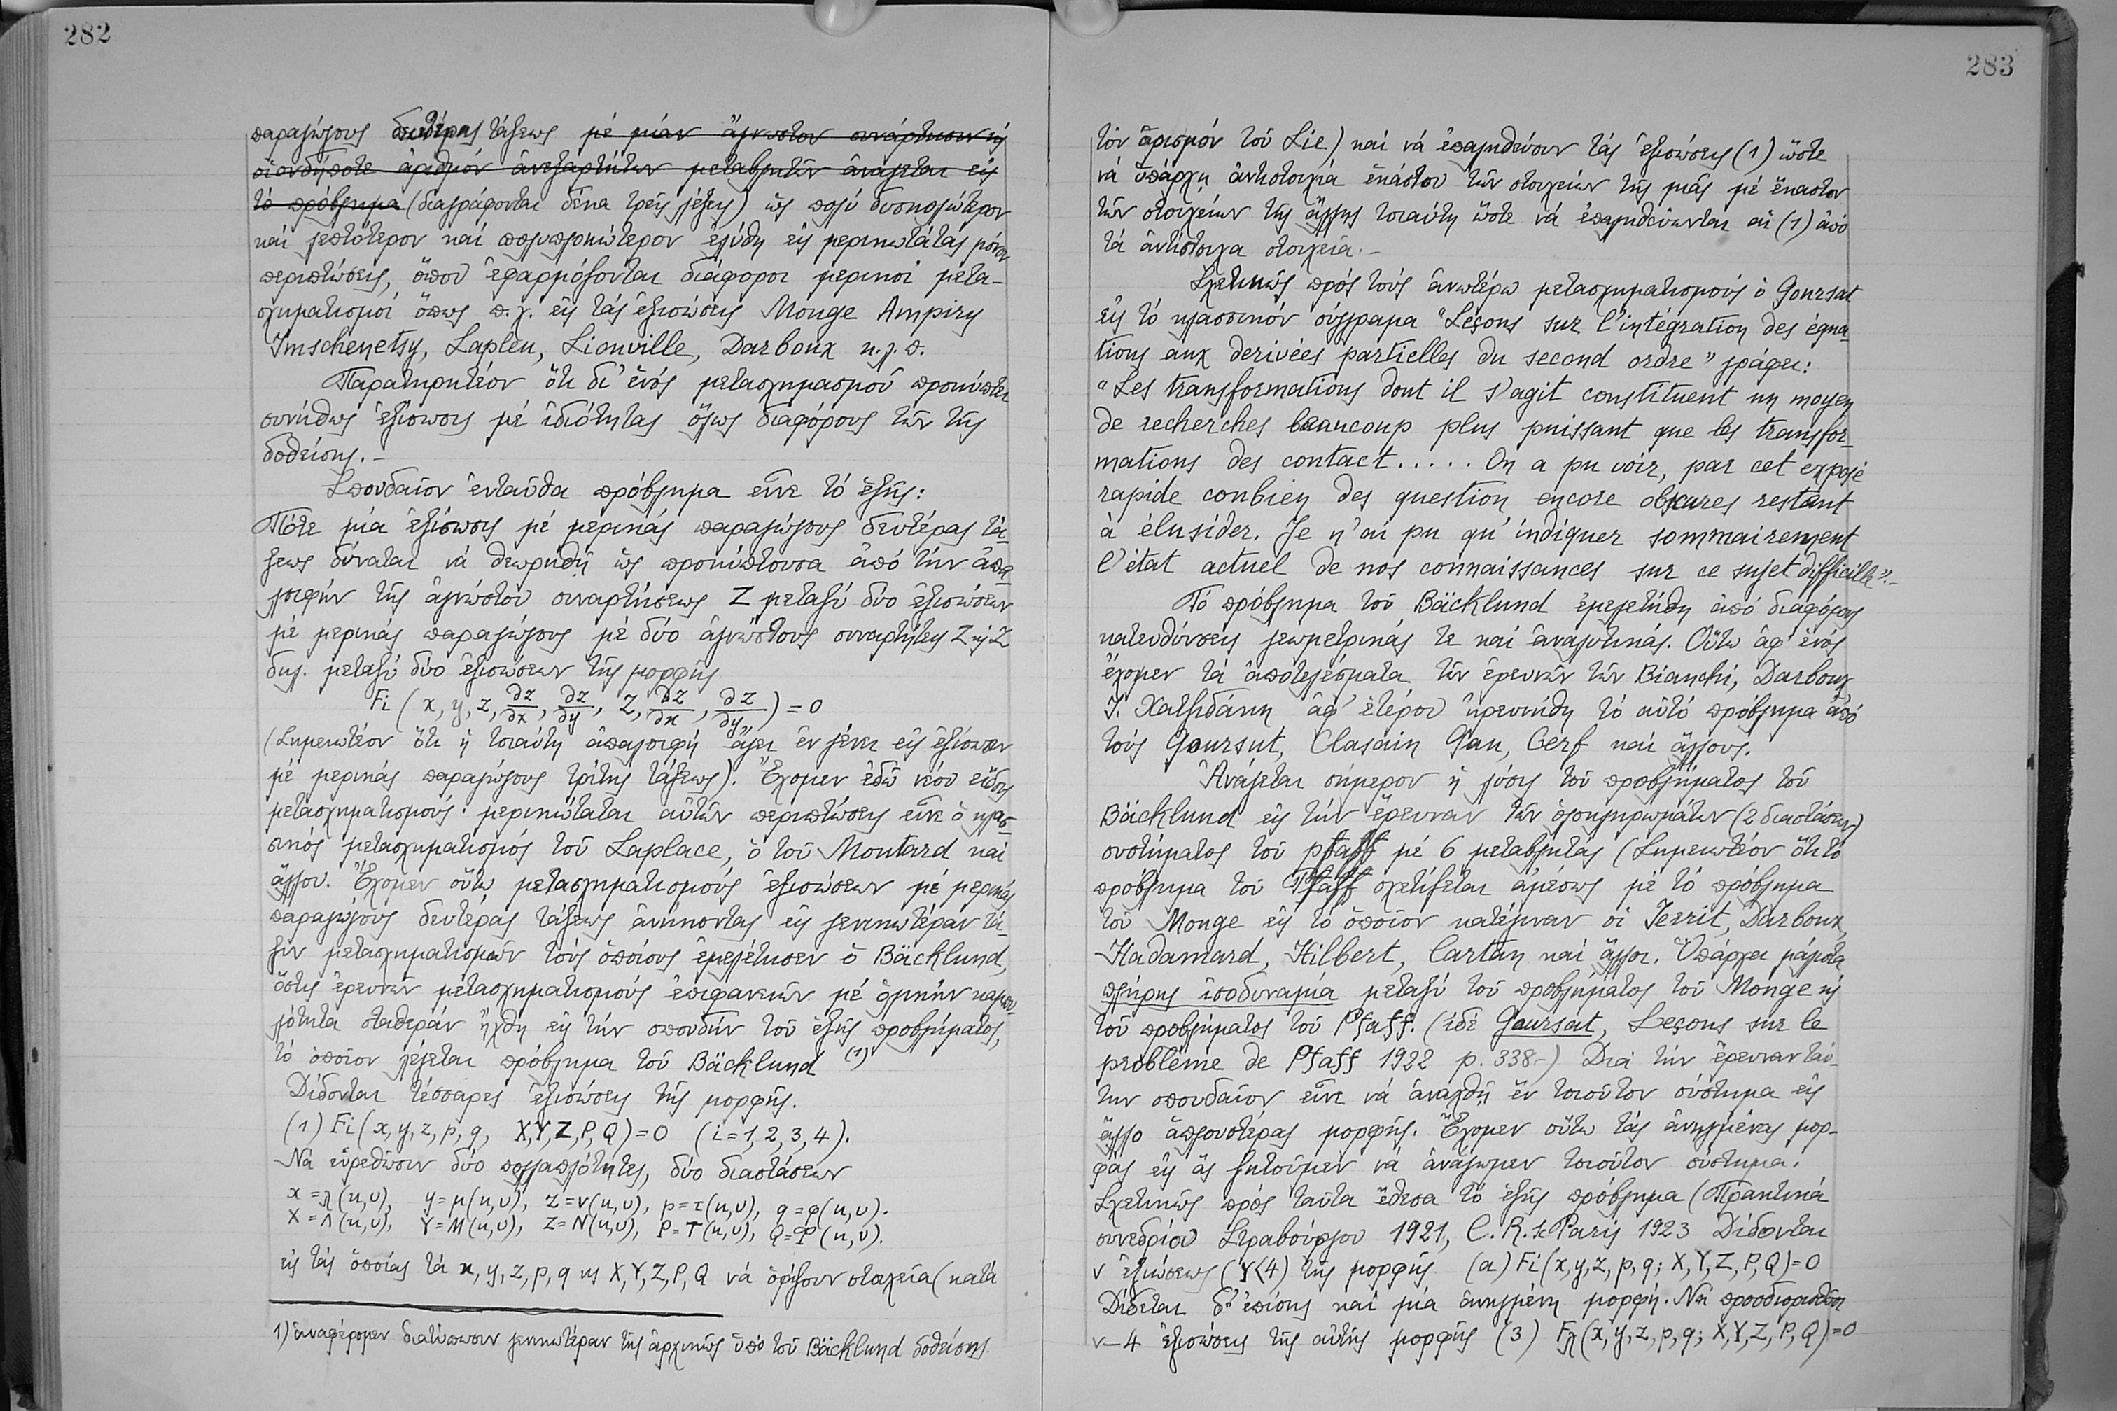 282
παραγώγους δευτέρας τάξεως μέ μίαν ἄγνωστον συνάρτησιν κ
οἱονδήποτε ἀριθμόν ἀνεξαρτήτων μεταβλητῶν ἀνάγεται εἰς
τό πρόβλημα (διαγράφονται δέκα τρεῖς λέξεις) ὡς πολύ δυσκολώτερον
καί λεπτότερον καί πολυπλοκώτερον ἐλύθη εἰς μερικωτάτας μόνον
περιπτώσεις, ὅπου ἐφαρμόζονται διάφοροι μερικοί μετα-
σχηματισμοί ὅπως π.χ. εἰς τάς ἐξισώσεις Monge Ampiry
Imschenetsy, Laplen, Liouville, Darboux κ.λ.π.
Παρατηρητέον ὅτι δι' ἑνός μετασχημασμοῦ προκύπτει
συνήθως ἐξίσωσις μέ ἰδιότητας ὅλως διαφόρους τῶν τῆς
δοθείσης.-
Σπουδαῖον ἐνταῦθα πρόβλημα εἶνε τό ἑξῆς:
Πότε μία ἐξίσωσις μέ μερικάς παραγώγους δευτέρας τά-
ξεως δύναται νά θεωρηθῇ ὡς προκύπτουσα ἀπό τήν ἀπα-
λοιφήν τῆς ἀγνώστου συναρτήσεως Z μεταξύ δύο ἐξισώσεων
μέ μερικάς παραγώγους μέ δύο ἀγνώστους συναρτήσεις Z κ Z
δηλ. μεταξύ δύο ἐξισώσεων τῆς μορφῆς
Fi (x, y, z, ∂z/∂x, ∂z/∂y, Z, ∂Z/∂x, ∂Z/∂y) = 0
(Σημειωτέον ὅτι ἡ τοιαύτη ἀπαλοιφή ἄγει ἐν γένει εἰς ἐξίσωσιν
μέ μερικάς παραγώγους τρίτης τάξεως). Ἔχομεν ἐδῶ νέου εἴδους
μετασχηματισμούς· μερικώταται αὐτῶν περιπτώσεις εἶνε ὁ κλασ-
σικός μετασχηματισμός τοῦ Laplace, ὁ τοῦ Moutard καί
ἄλλου. Ἔχομεν οὕτω μετασχηματισμούς ἐξισώσεων μέ μερικάς
παραγώγους δευτέρας τάξεως ἀνήκοντας εἰς γενικωτέραν τά-
ξιν μετασχηματισμῶν τούς ὁποίους ἐμελέτησεν ὁ Bäcklund,
ὅστις ἐρευνῶν μετασχηματισμούς ἐπιφανειῶν μέ ὁλικήν καμπυ-
λότητα σταθεράν ἤχθη εἰς τήν σπουδήν τοῦ ἑξῆς προβλήματος,
τό ὁποῖον λέγεται πρόβλημα τοῦ Bäcklund (1)
Δίδονται τέσσαρες ἐξισώσεις τῆς μορφῆς.
(1) Fi (x, y, z, p, q, X,Y,Z,P,Q)=0 (i=1,2,3,4).
Νά εὑρεθῶσιν δύο πολλαπλότητες, δύο διαστάσεων
x=λ(u,υ), y=μ(u,υ), z=ν(u,υ), p=τ(u,υ), q=φ(u,υ).
X=Λ(u,υ), Y=Μ(u,υ), Z=Ν(u,υ), P=Τ(u,υ), Q=Φ(u,υ).
εἰς τάς ὁποίας τά x, y, z, p, q κ X,Y,Z,P,Q νά ὁρίζουν στοιχεῖα (κατά
1) ἀναφέρομεν διατύπωσιν γενικωτέραν τῆς ἀρχικῶς ὑπό τοῦ Bäcklund δοθείσης
283
τόν ὁρισμόν τοῦ Lie) καί νά ἐπαληθεύουν τάς ἐξισώσεις (1) ὥστε
νά ὑπάρχῃ ἀντιστοιχία ἑκάστου τῶν στοιχείων τῆς μιᾶς μέ ἕκαστον
τῶν στοιχείων τῆς ἄλλης τοιαύτη ὥστε νά ἐπαληθεύωνται αἱ (1) ἀπό
τά ἀντίστοιχα στοιχεῖα.-
Σχετικῶς πρός τούς ἀνωτέρω μετασχηματισμούς ὁ Goursat
εἰς τό κλασσικόν σύγγραμα "Leçons sur l'intégration des équa-
tions aux derivées partielles du second ordre" γράφει:
"Les transformations dont il s'agit constituent un moyen
de recherches beaucoup plus puissant que les transfor-
mations des contact..... On a pu voir, par cet exposé
rapide conbien des question encore obscures restant
à élusider. Je n'ai pu qu' indiquer sommairement
l'état actuel de nos connaissances sur ce sujet difficille".-
Τό πρόβλημα τοῦ Bäcklund ἐμελετήθη ἀπό διαφόρους
κατευθύνσεις γεωμετρικάς τε καί ἀναλυτικάς. Οὕτω ἀφ' ἑνός
ἔχομεν τά ἀποτελέσματα τῶν ἐρευνῶν τῶν Bianchi, Darboux
Ἰ. Χατζιδάκη ἀφ' ἑτέρου ἠρευνήθη τό αὐτό πρόβλημα ἀπό
τούς Goursut, Clasain Gau, Cerf καί ἄλλους.
Ἀνάγεται σήμερον ἡ λύσις τοῦ προβλήματος τοῦ
Bäcklund εἰς τήν ἔρευναν τῶν ὁλοκληρωμάτων (2 διαστάσεων)
συστήματος τοῦ pfaff μέ 6 μεταβλητάς (Σημειωτέον ὅτι τό
πρόβλημα τοῦ Pfaff σχετίζεται ἀμέσως μέ τό πρόβλημα
τοῦ Monge εἰς τό ὁποῖον κατέγιναν οἱ Territ, Darboux,
Hadamard, Hilbert, Cartan καί ἄλλοι. Ὑπάρχει μάλιστα
πλήρης ἰσοδυναμία μεταξύ τοῦ προβλήματος τοῦ Monge κ
τοῦ προβλήματος τοῦ Pfaff. (ἰδέ Goursat, Leçons sur le
problème de Pfaff 1922 p. 338-) Διά τήν ἔρευναν ταύ-
την σπουδαῖον εἶνε νά ἀναχθῇ ἕν τοιοῦτον σύστημα εἰς
ἄλλο ἁπλουστέρας μορφῆς. Ἔχομεν οὕτω τάς ἀνηγμένας μορ-
φάς εἰς ἅς ζητοῦμεν νά ἀνάγωμεν τοιοῦτον σύστημα.
Σχετικῶς πρός ταῦτα ἔθεσα τό ἑξῆς πρόβλημα (Πρακτικά
συνεδρίου Στρασβούργου 1921, C. R. de Paris 1923 Δίδονται
ν ἐξισώσεως (γ<4) τῆς μορφῆς (α) Fi(x,y,z,p,q; X,Y,Z,P,Q)=0
Δίδεται δ' ἐπίσης καί μία ἀνηγμένη μορφή. Νά προσδιορισθῶσι
ν-4 ἐξισώσεις τῆς αὐτῆς μορφῆς (3) Fλ(x,y,z,p,q; X,Y,Z,P,Q)=0